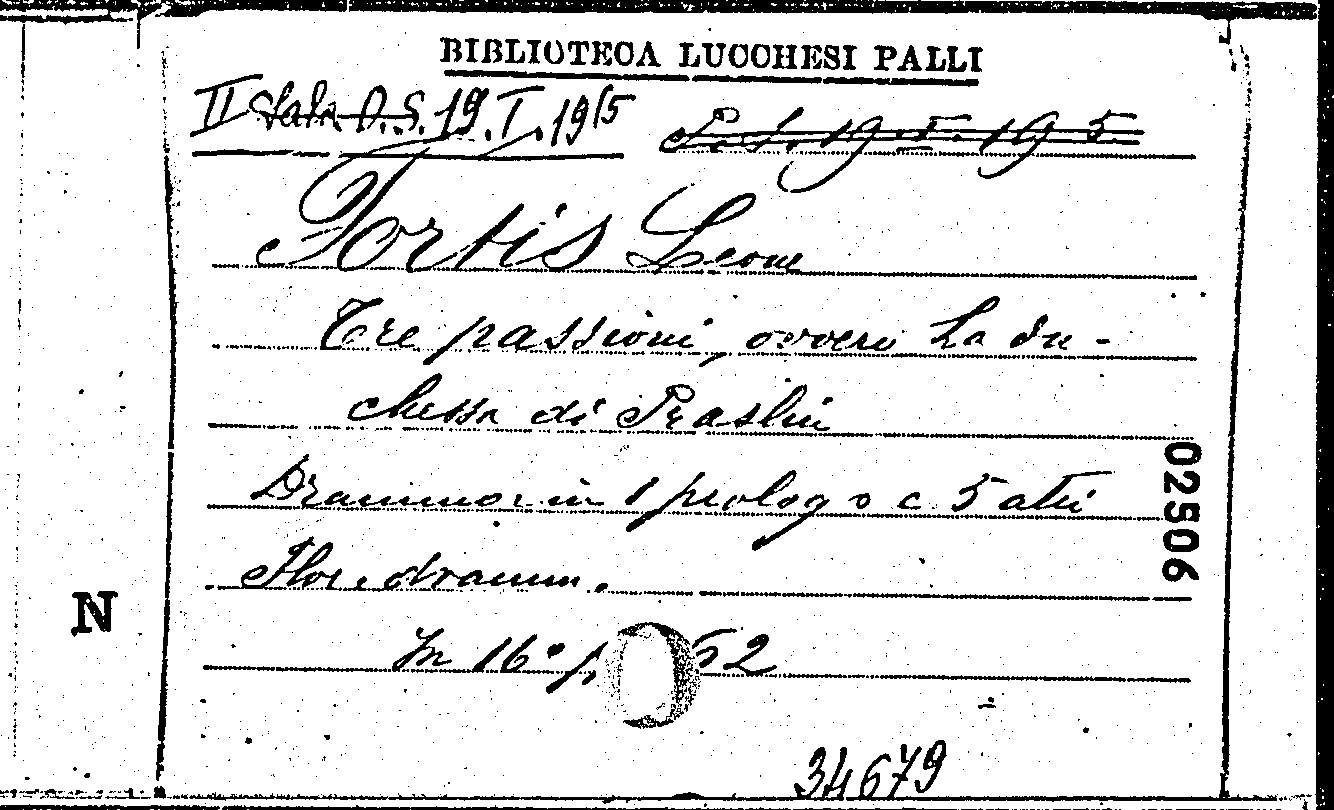 BIBLIOTECA LUCCHESI PALLI
II Sala D.S. 19.I.19(5
P.S. 19.I.19 5
Fortis Leone
Tre passioni, ovvero La du-
chessa di Praslin
Dramma in 1 prologo e 5 atti
Flor. dramm.
In 16° p. 52
34679
02506
N